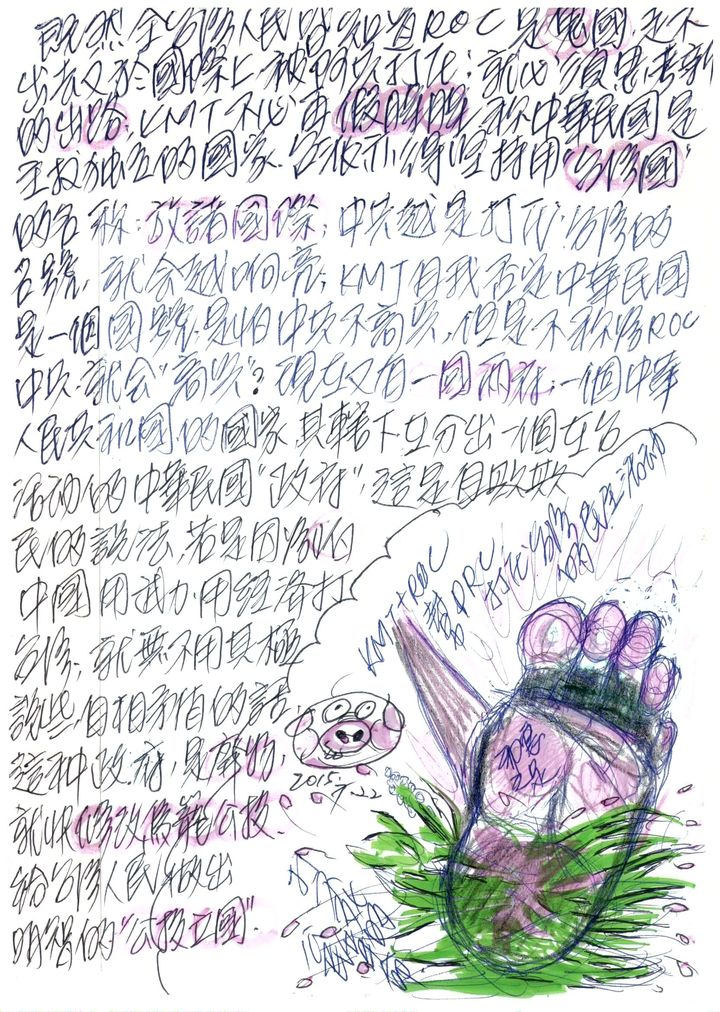 既然全台灣人民皆知道ROC是鬼國,走不
出去又於國際上被阿共打死;就必須思考新
的出路;KMT不必再假的稱中華民國是
主权独立的國家.台派亦得堅持用"台灣國"
的名称;放諸國際;中共越是打死台灣的
名號,就会越响亮;KMT自我否定中華民國
是一個國號;是怕中共不高兴,但是不称為ROC
中共就会"高兴"?現在又有一國兩府;一個中華
人民共和國的國家其轄下在分出一個在台
活动的中華民國"政府";這是自欺欺
民的說法,若是因為怕
中國用武力,用經濟打
台灣,就無不用其極
說些自相矛盾的話.
這种政府,是廢物,
就快修改鳥籠公投.
給台灣人民做出
明智的"公投立國".
KMT+ROC
替PRC
打死台灣
的民主活动
2015.
7.22